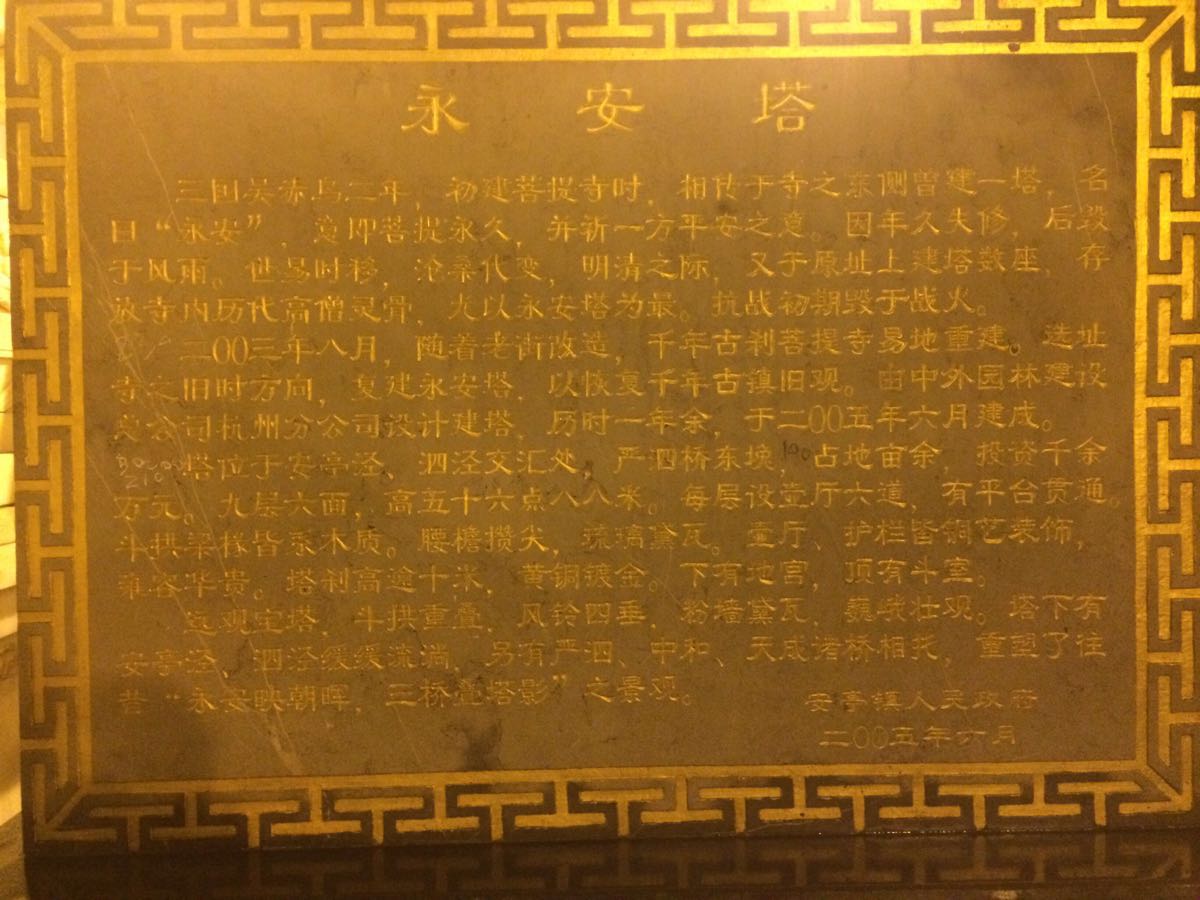 永安塔
三国吴赤乌二年，初建菩提寺时，相传于寺之东侧曾建一塔，名
曰“永安”，意即菩提永久，并祈一方平安之意。因年久失修，后毁
于风雨。世易时移，沧桑代变，明清之际，又于原址上建塔数座，存
放寺内历代高僧灵骨，尤以永安塔为最。抗战初期毁于战火。
二00三年八月，随着老街改造，千年古刹菩提寺易地重建。选址
寺之旧时方向，复建永安塔，以恢复千年古镇旧观。由中外园林建设
总公司杭州分公司设计建塔，历时一年余，于二00五年六月建成。
塔位于安亭泾、泗泾交汇处，严泗桥东堍，占地亩余，投资千余
万元。九层六面，高五十六点八八米。每层设壶厅六道，有平台贯通。
斗拱梁椽皆系木质。腰檐攒尖，琉璃黛瓦。壶厅、护栏皆铜艺装饰，
雍容华贵。塔刹高逾十米，黄铜镀金。下有地宫，顶有斗室。
远观宝塔，斗拱重叠，风铃四垂，粉墙黛瓦，巍峨壮观。塔下有
安亭泾、泗泾缓缓流淌，另有严泗、中和、天成诸桥相托，重塑了往
昔“永安映朝晖，三桥叠塔影”之景观。
安亭镇人民政府
二00五年六月